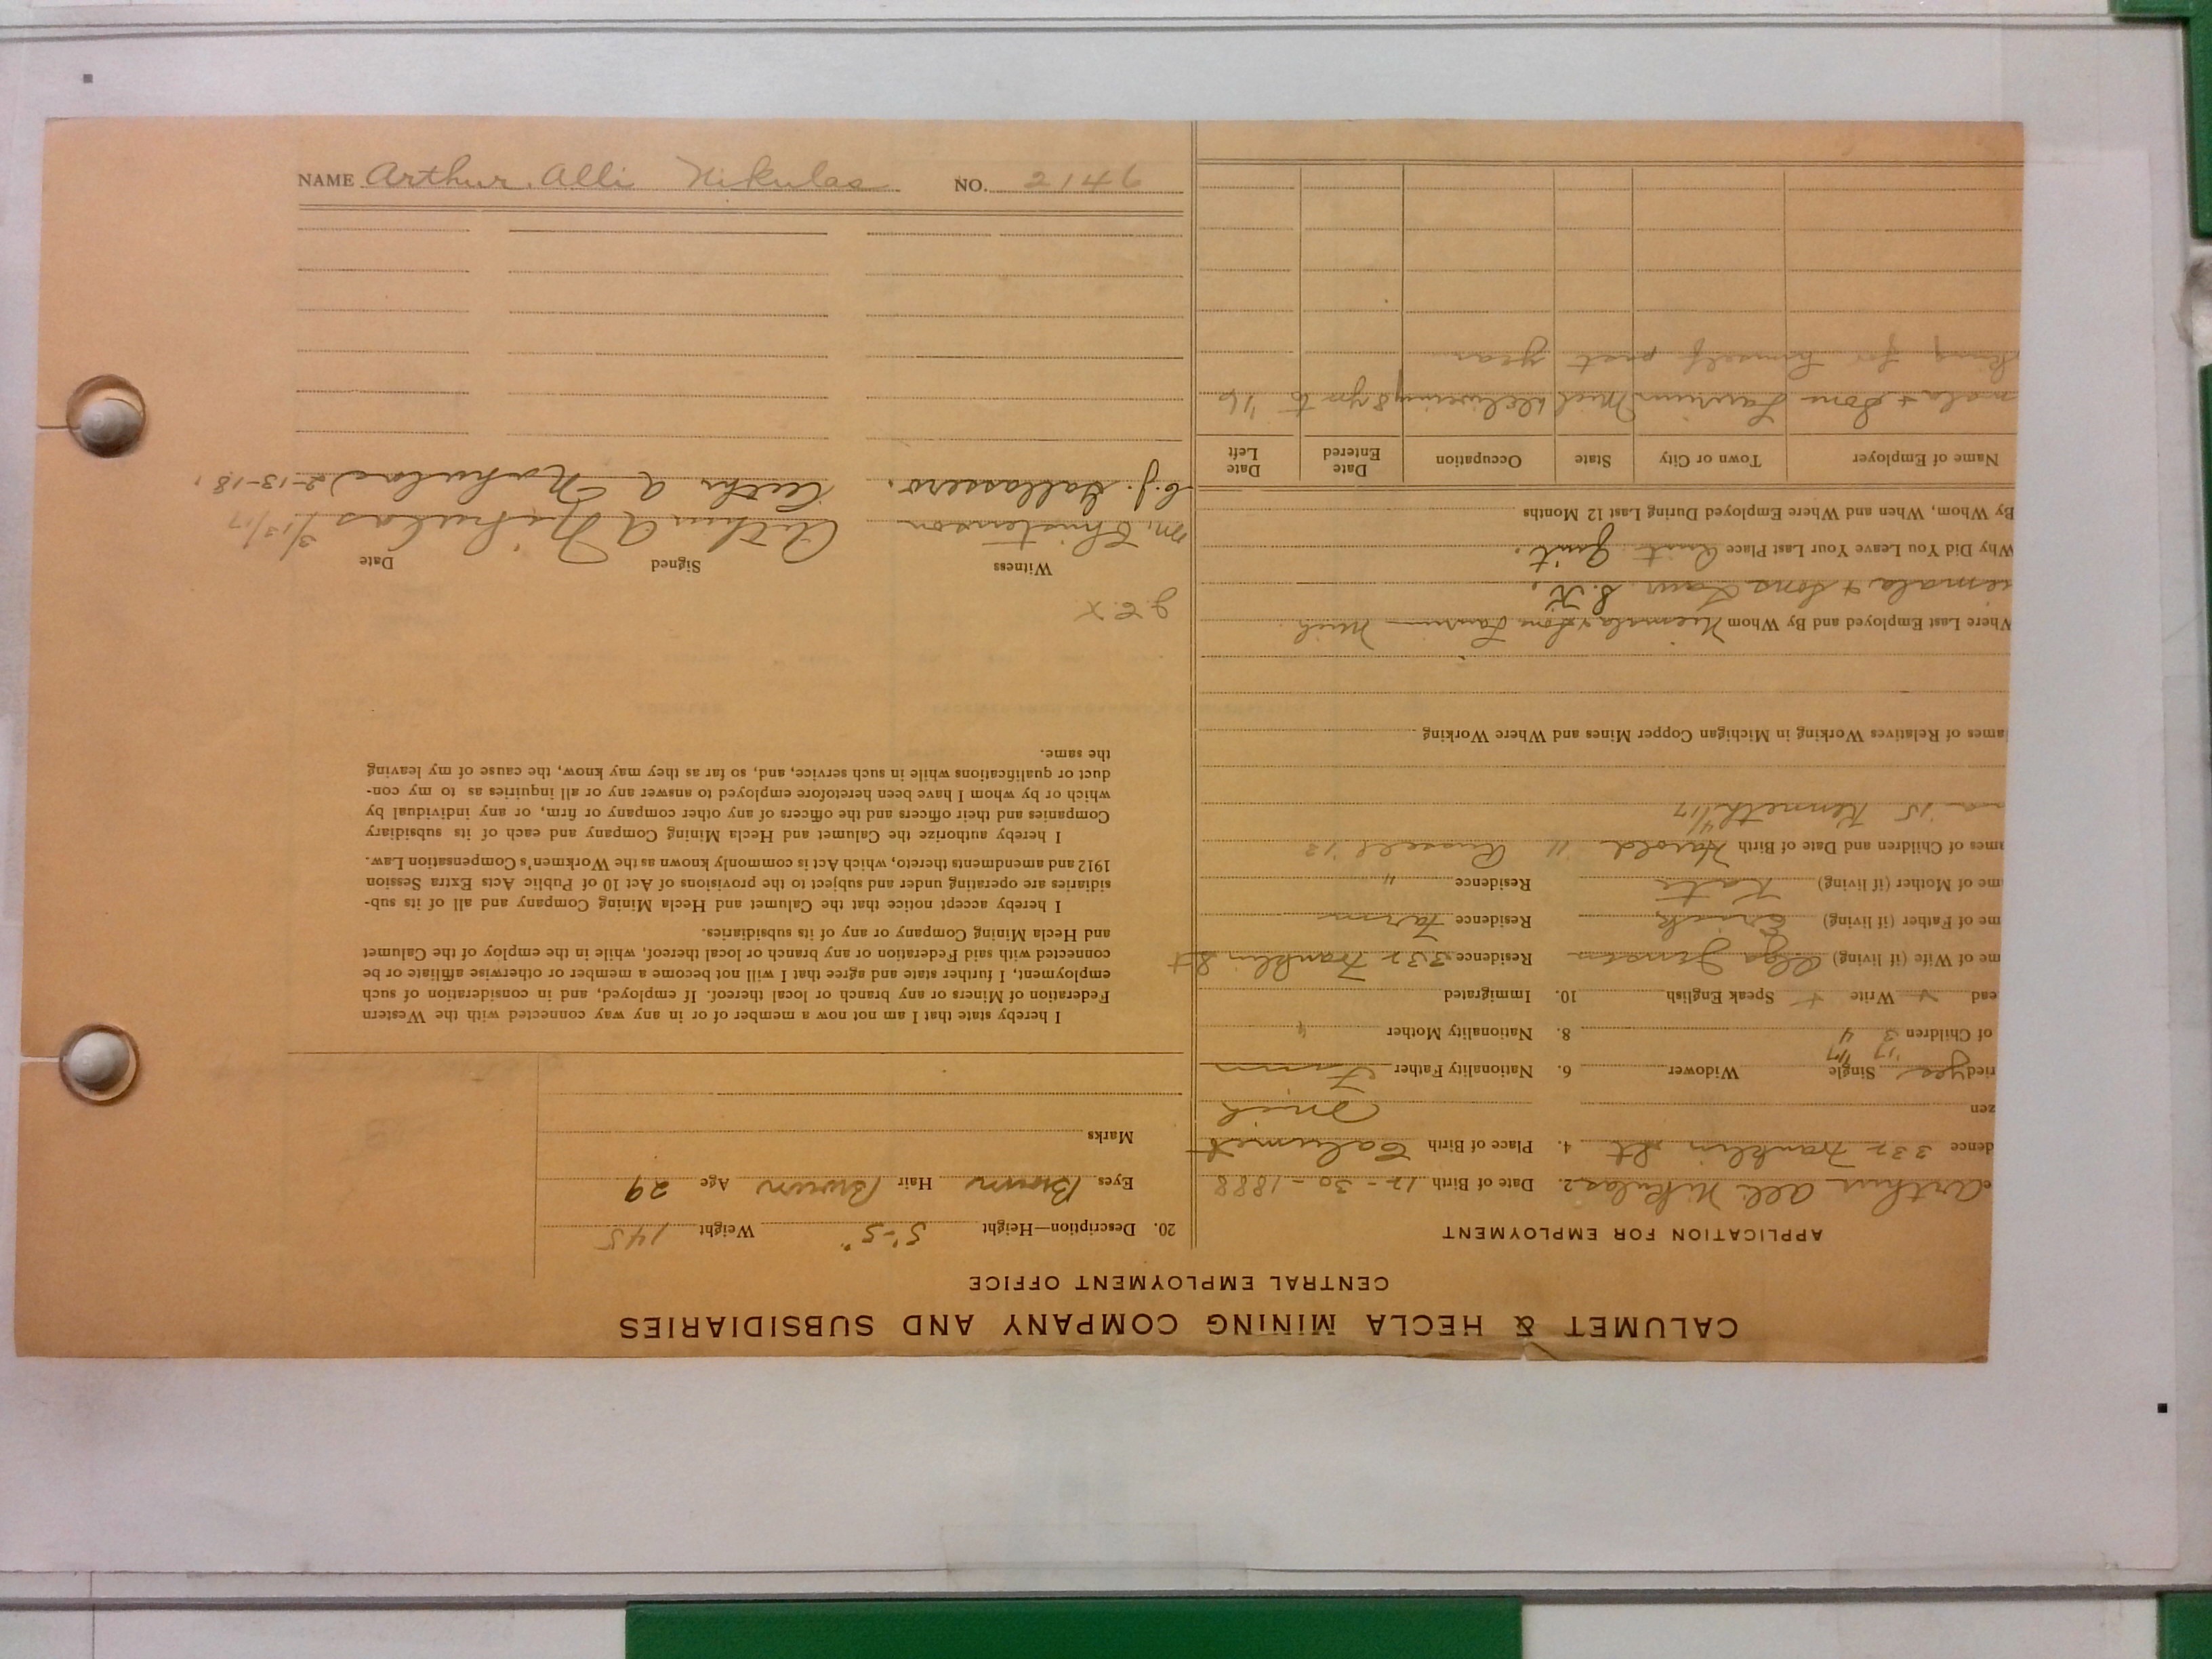 NAME Arthur Alli Nikulas NO. 2146
CALUMET & HECLA MINING COMPANY AND SUBSIDIARIES
CENTRAL EMPLOYMENT OFFICE
APPLICATION FOR EMPLOYMENT
Arthur Alli Nikulas 2. Date of Birth 12-30-1888
dence 332 Franklin St 4. Place of Birth Calumet
zen Mich
ried yes Single Widower 6. Nationality Father Finn
'17 4/17
of Children 3 4 8. Nationality Mother "
ead + Write + Speak English 10. Immigrated
me of Wife (if living) Olga Residence 332 Franklin St
me of Father (if living) Erick Residence Farm
me of Mother (if living) Kate Residence "
ames of Children and Date of Birth Harold 11 Russell '13
15 Kenneth 4/17
ames of Relatives Working in Michigan Copper Mines and Where Working
Where Last Employed and By Whom Niemala & Sons Laurium Mich
iemala & Sons Laur.
Why Did You Leave Your Last Place Quit Quit.
By Whom, When and Where Employed During Last 12 Months
Name of Employer Town or City State Occupation Date Entered Date Left
mala & Sons Laurium Mich delivering 8 yrs to '16
king for himself past year
20. Description—Height 5'-5" Weight 145
Eyes Brown Hair Brown Age 29
Marks
I hereby state that I am not now a member of or in any way connected with the Western
Federation of Miners or any branch or local thereof. If employed, and in consideration of such
employment, I further state and agree that I will not become a member or otherwise affiliate or be
connected with said Federation or any branch or local thereof, while in the employ of the Calumet
and Hecla Mining Company or any of its subsidiaries.
I hereby accept notice that the Calumet and Hecla Mining Company and all of its sub-
sidiaries are operating under and subject to the provisions of Act 10 of Public Acts Extra Session
1912 and amendments thereto, which Act is commonly known as the Workmen's Compensation Law.
I hereby authorize the Calumet and Hecla Mining Company and each of its subsidiary
Companies and their officers and the officers of any other company or firm, or any individual by
which or by whom I have been heretofore employed to answer any or all inquiries as to my con-
duct or qualifications while in such service, and, so far as they may know, the cause of my leaving
the same.
Witness Signed Date
M. Christenson Arthur A Nikulas 3/13/17
C.J. Gallassero. Arth A 2-13-18.